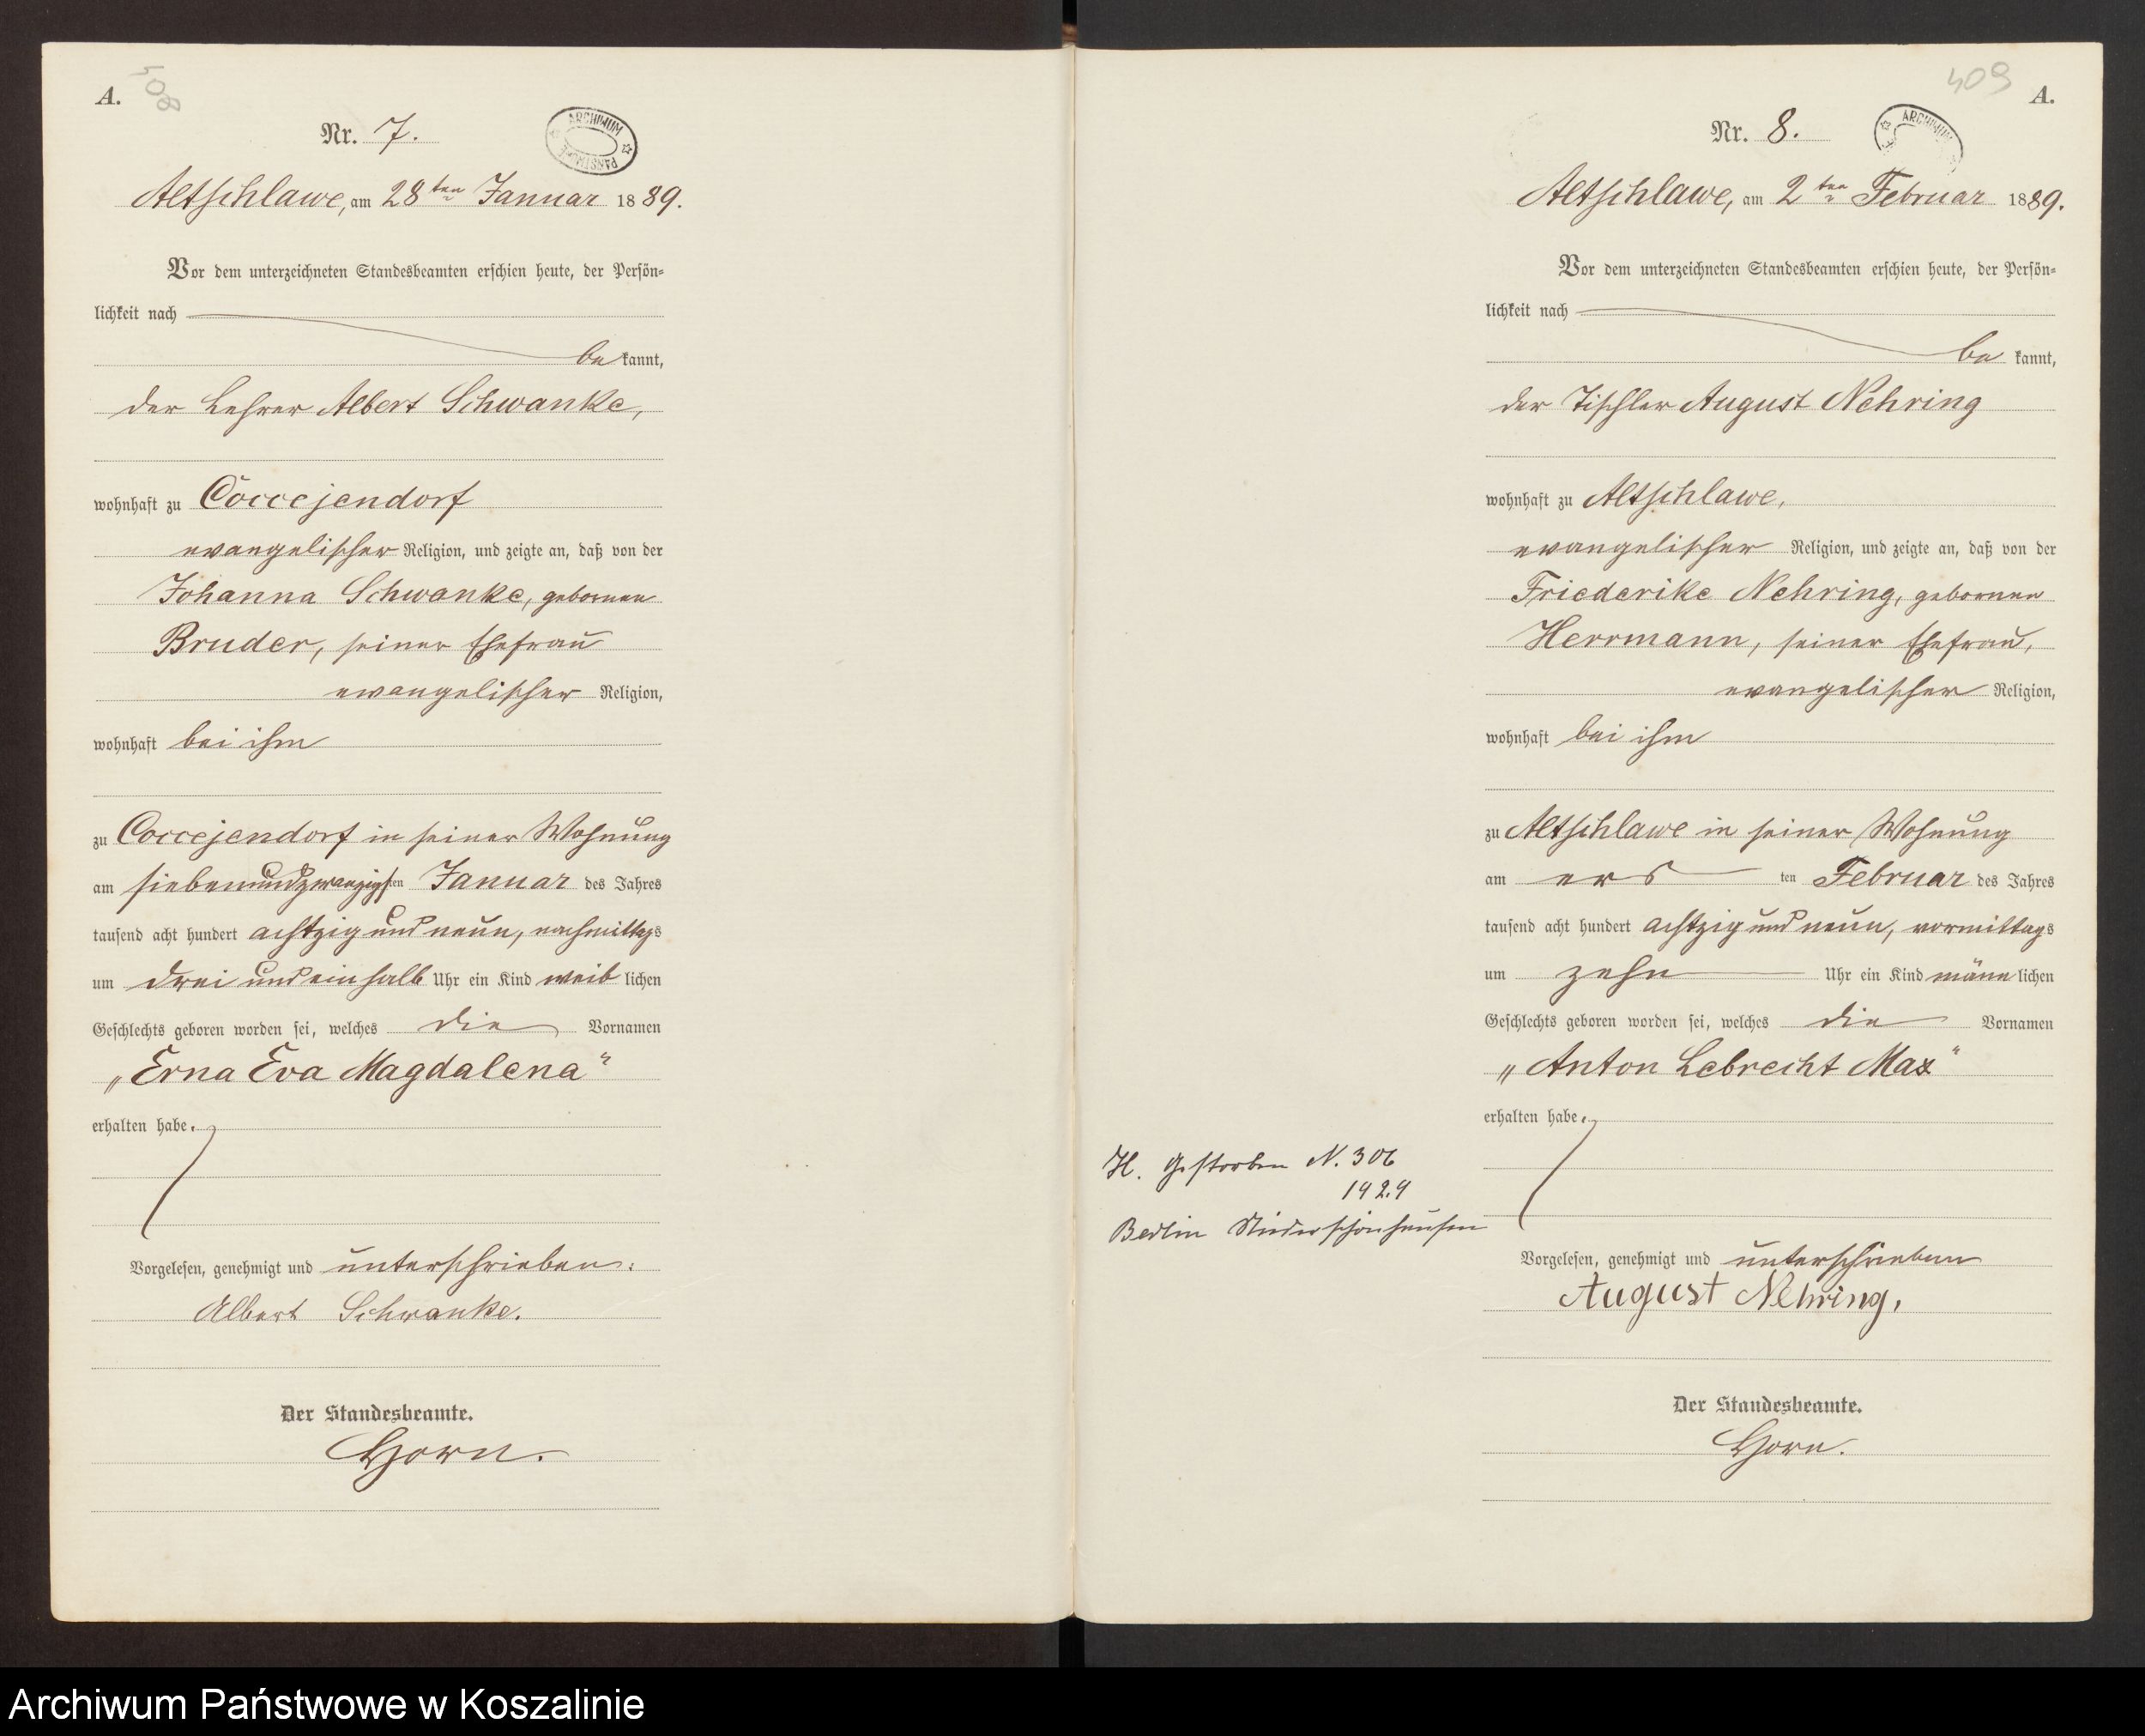 A.
508
Nr. 7.
ARCHIWUM PAŃSTWOWE
Altschlawe, am 28ten Januar 1889.
Vor dem unterzeichneten Standesbeamten erschien heute, der Persön-
lichkeit nach
bekannt,
der Lehrer Albert Schwanke,
wohnhaft zu Coccejendorf
evangelischer Religion, und zeigte an, daß von der
Johanna Schwanke, gebornen
Bruder, seiner Ehefrau
evangelischer Religion,
wohnhaft bei ihm
zu Coccejendorf in seiner Wohnung
am siebenundzwanzigsten Januar des Jahres
tausend acht hundert achtzig und neun, nachmittags
um drei und einhalb Uhr ein Kind weiblichen
Geschlechts geboren worden sei, welches die Vornamen
„Erna Eva Magdalena“
erhalten habe.
Vorgelesen, genehmigt und unterschrieben.
Albert Schwanke.
Der Standesbeamte.
Horn.
409
A.
Nr. 8.
ARCHIWUM
Altschlawe, am 2ten Februar 1889.
Vor dem unterzeichneten Standesbeamten erschien heute, der Persön-
lichkeit nach
bekannt,
der Tischler August Nehring
wohnhaft zu Altschlawe,
evangelischer Religion, und zeigte an, daß von der
Friederike Nehring, gebornen
Herrmann, seiner Ehefrau,
evangelischer Religion,
wohnhaft bei ihm
zu Altschlawe in seiner Wohnung
am ersten Februar des Jahres
tausend acht hundert achtzig und neun, vormittags
um zehn Uhr ein Kind männlichen
Geschlechts geboren worden sei, welches die Vornamen
„Anton Lebrecht Max“
erhalten habe.
H. Gestorben N. 306
1929
Berlin Niederschönhausen
Vorgelesen, genehmigt und unterschrieben
August Nehring.
Der Standesbeamte.
Horn.
Archiwum Państwowe w Koszalinie